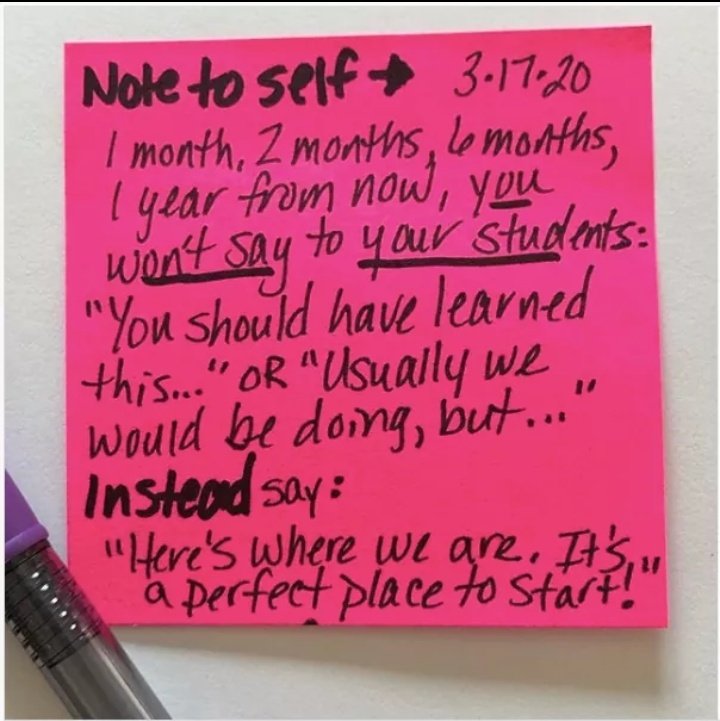 Note to self → 3.17.20
1 month, 2 months, 6 months,
1 year from now, you
won't say to your students:
"You should have learned
this..." OR "Usually we
would be doing, but..."
Instead say:
"Here's where we are. It's
a perfect place to start!"